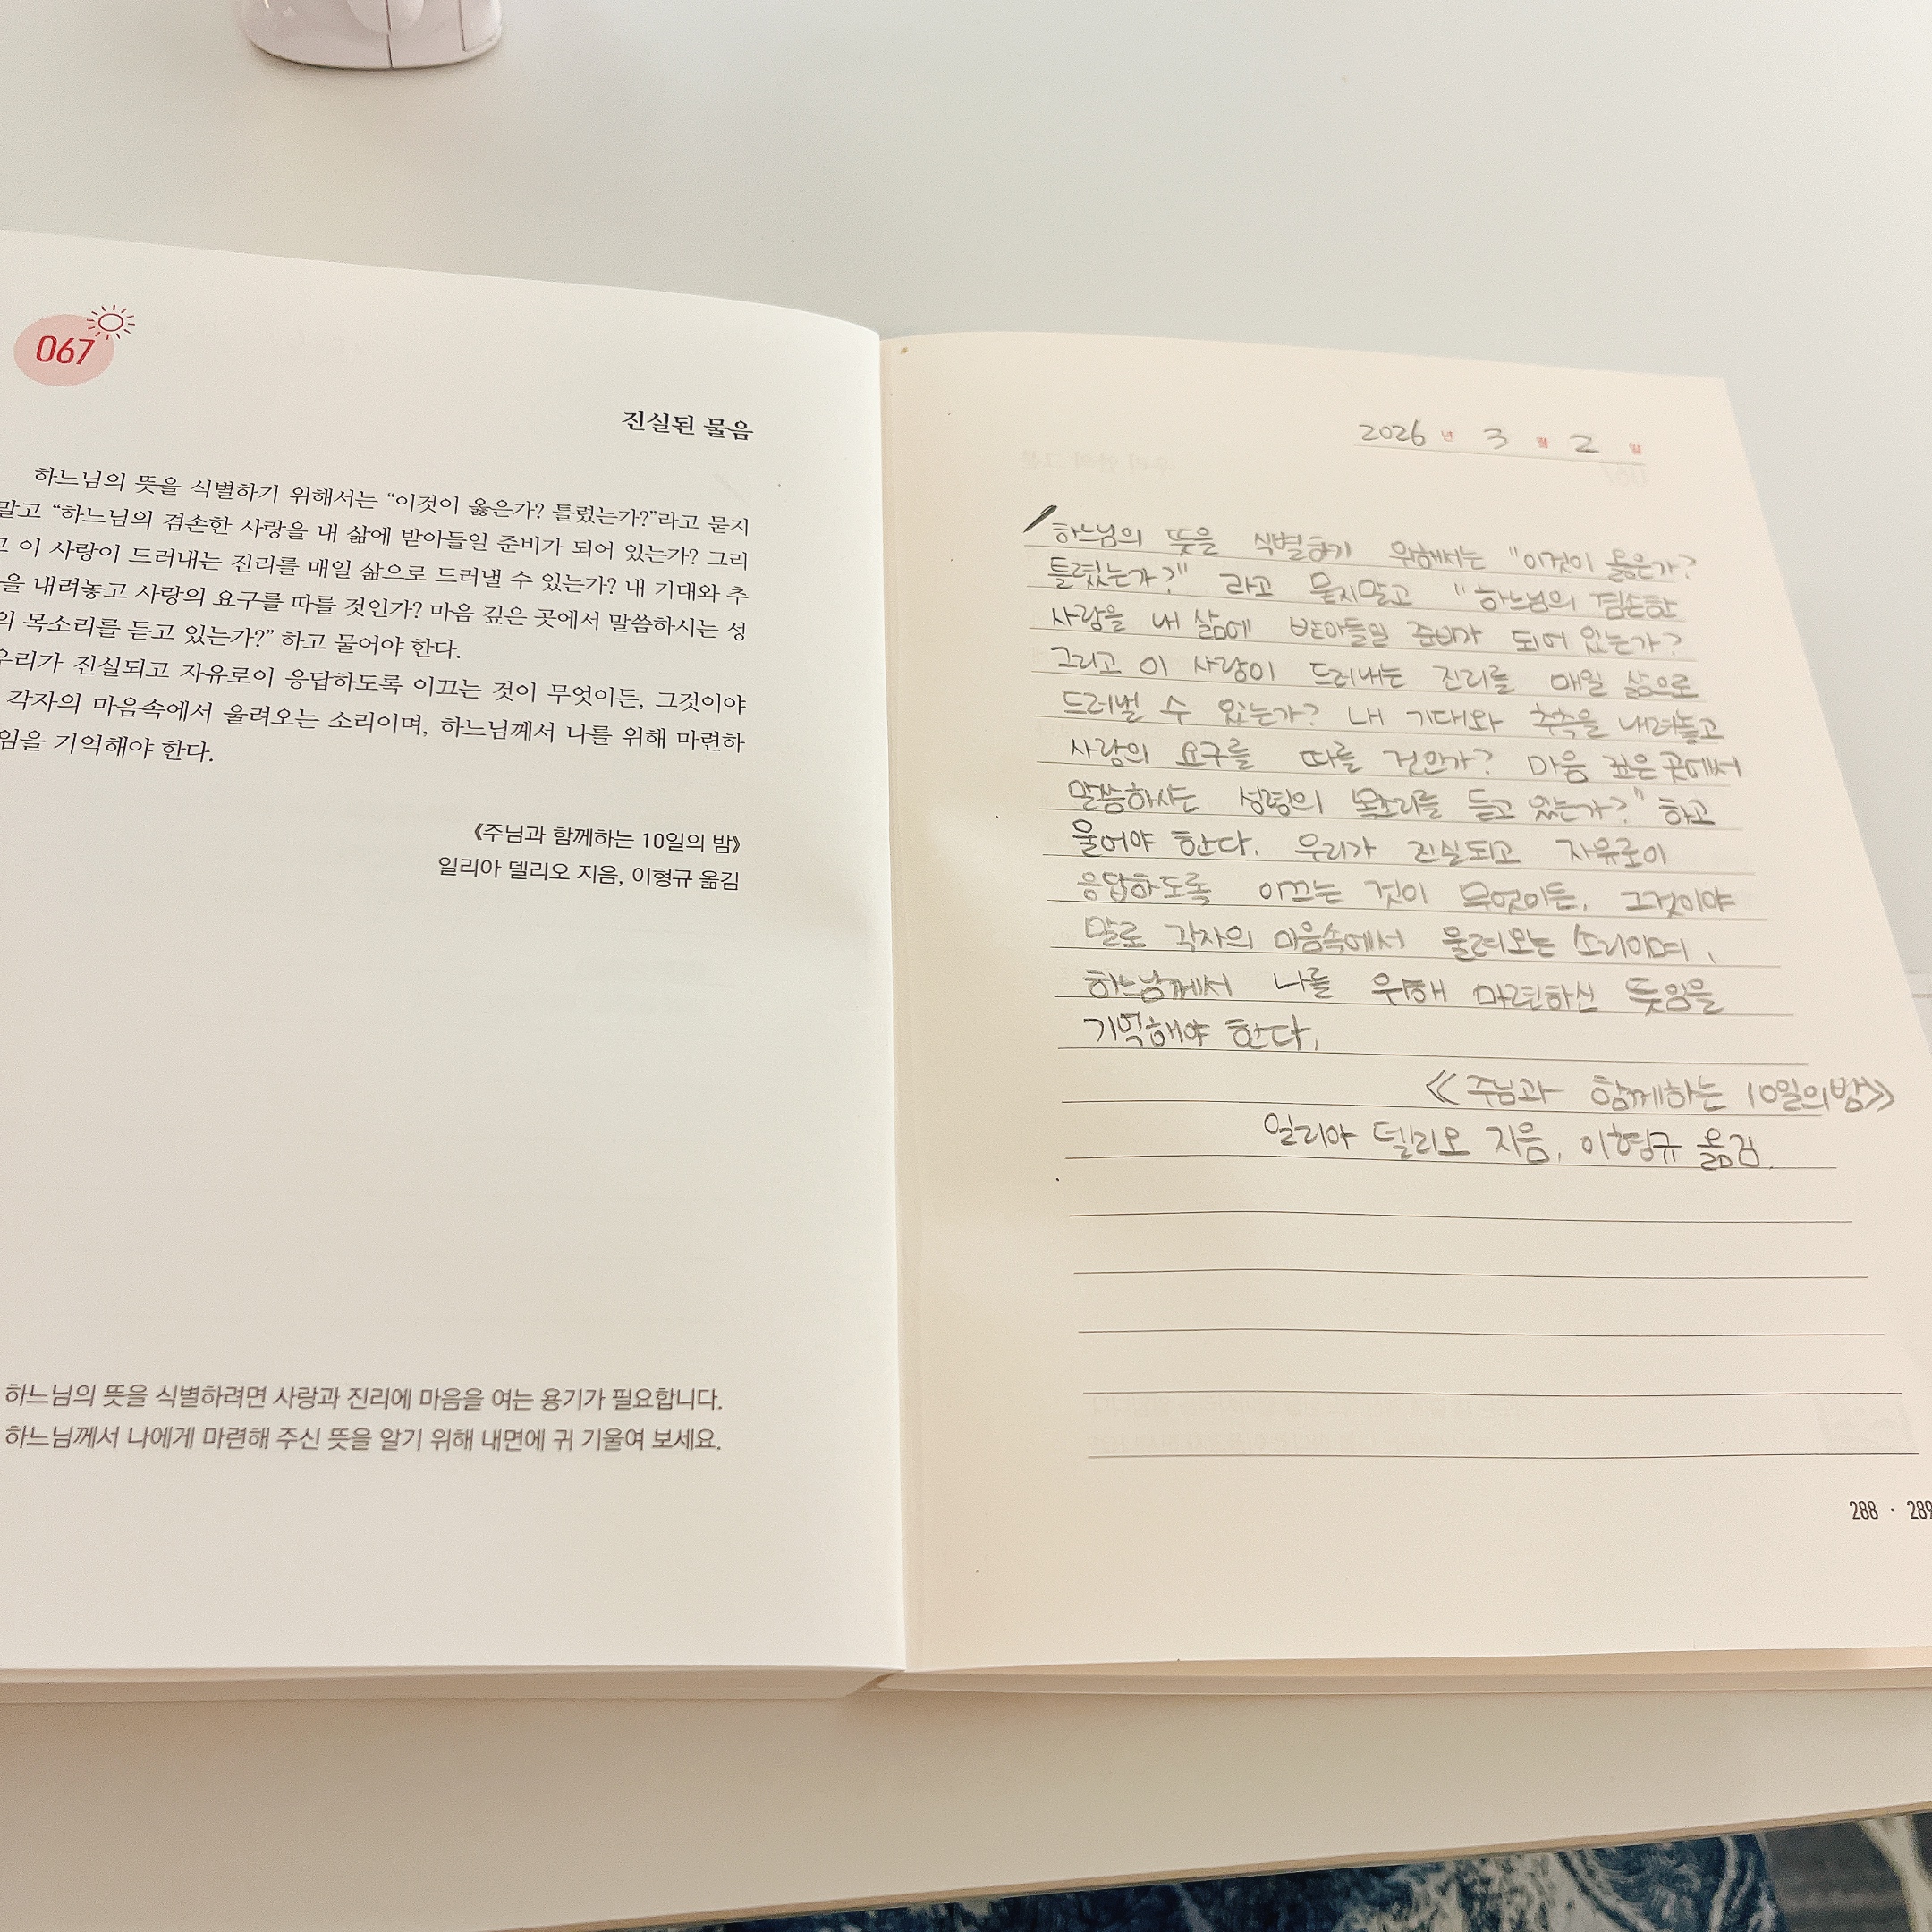 067
진실된 물음
하느님의 뜻을 식별하기 위해서는 “이것이 옳은가? 틀렸는가?”라고 묻지
말고 “하느님의 겸손한 사랑을 내 삶에 받아들일 준비가 되어 있는가? 그리
이 사랑이 드러내는 진리를 매일 삶으로 드러낼 수 있는가? 내 기대와 추
을 내려놓고 사랑의 요구를 따를 것인가? 마음 깊은 곳에서 말씀하시는 성
의 목소리를 듣고 있는가?” 하고 물어야 한다.
우리가 진실되고 자유로이 응답하도록 이끄는 것이 무엇이든, 그것이야
각자의 마음속에서 울려오는 소리이며, 하느님께서 나를 위해 마련하
임을 기억해야 한다.
《주님과 함께하는 10일의 밤》
일리아 델리오 지음, 이형규 옮김
하느님의 뜻을 식별하려면 사랑과 진리에 마음을 여는 용기가 필요합니다.
하느님께서 나에게 마련해 주신 뜻을 알기 위해 내면에 귀 기울여 보세요.
2026 년 3 월 2 일
하느님의 뜻을 식별하기 위해서는 "이것이 옳은가?
틀렸는가?" 라고 묻지말고 "하느님의 겸손한
사랑을 내 삶에 받아들일 준비가 되어 있는가?
그리고 이 사랑이 드러내는 진리를 매일 삶으로
드러낼 수 있는가? 내 기대와 추측을 내려놓고
사랑의 요구를 따를 것인가? 마음 깊은 곳에서
말씀하시는 성령의 목소리를 듣고 있는가?" 하고
물어야 한다. 우리가 진실되고 자유로이
응답하도록 이끄는 것이 무엇이든, 그것이야
말로 각자의 마음속에서 울려오는 소리이며,
하느님께서 나를 위해 마련하신 뜻임을
기억해야 한다.
《주님과 함께하는 10일의밤》
일리아 델리오 지음, 이형규 옮김.
288 · 289